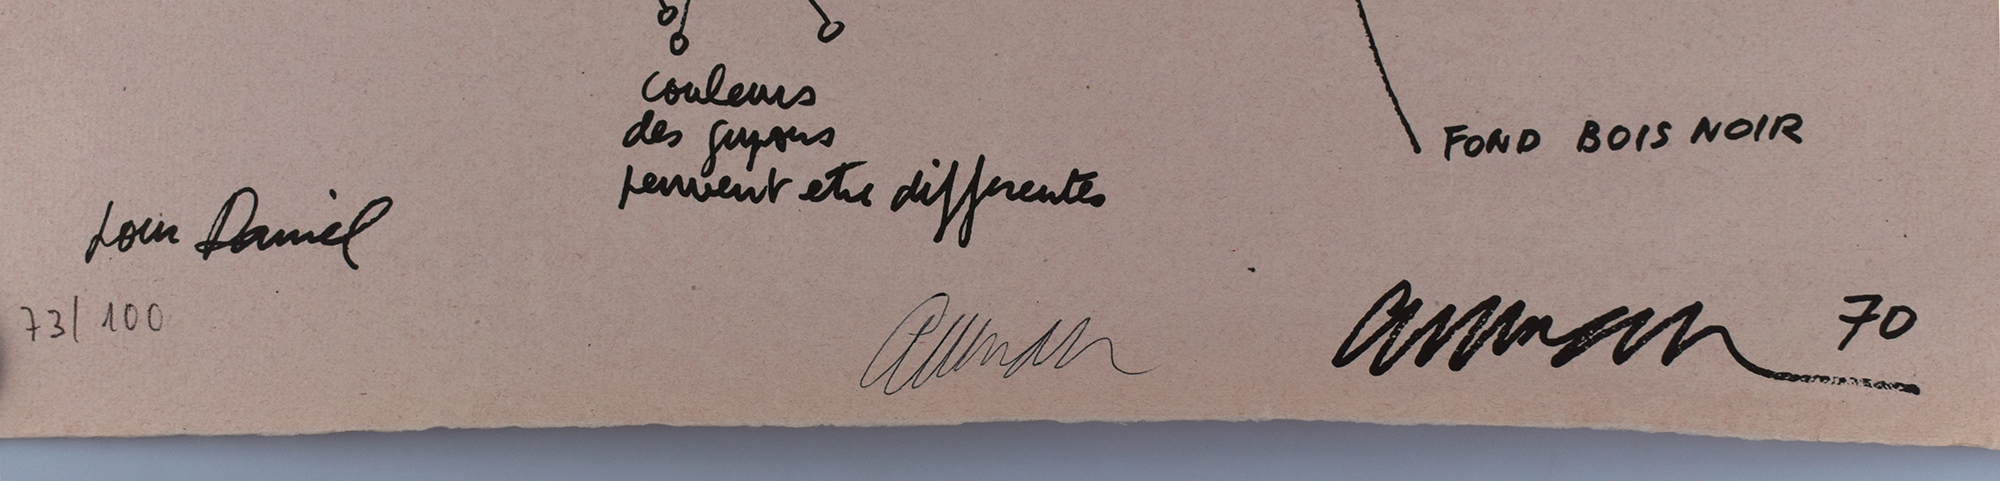 couleurs
des gupons
peuvent etre differentes
FOND BOIS NOIR
Daniel
73/100
Arman
Arman 70